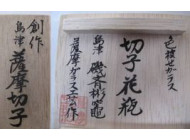 色被せガラス
切子花瓶
島津
磯斉彬竈
薩摩ガラス工芸
創作
島津
薩摩切子